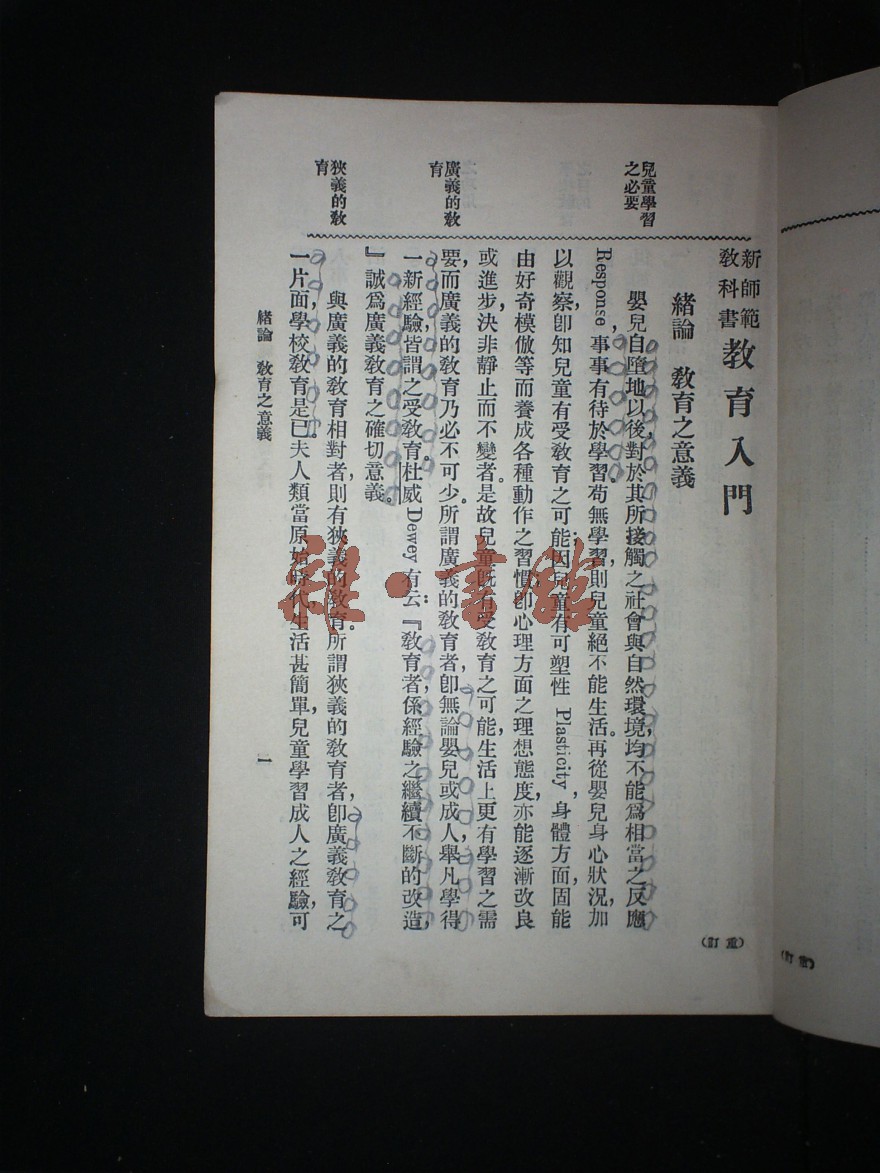 新師範
教科書
教育入門
(重訂)
緒論　教育之意義
兒童學習
之必要
嬰兒自墮地以後，對於其所接觸之社會與自然環境，均不能爲相當之反應
Response，事事有待於學習。苟無學習，則兒童絕不能生活。再從嬰兒身心狀況，加
以觀察，卽知兒童有受教育之可能。因兒童有可塑性 Plasticity，身體方面，固能
由好奇模倣等而養成各種動作之習慣；卽心理方面之理想態度，亦能逐漸改良
或進步，決非靜止而不變者。是故兒童旣有受教育之可能，生活上更有學習之需
廣義的教
育
要，而廣義的教育乃必不可少。所謂廣義的教育者，卽無論嬰兒或成人，舉凡學得
一新經驗，皆謂之受教育。杜威 Dewey 有云：『教育者，係經驗之繼續不斷的改造，
』誠爲廣義教育之確切意義。
狹義的教
育
與廣義的教育相對者，則有狹義的教育。所謂狹義的教育者，卽廣義教育之
一片面，學校教育是已。夫人類當原始時代，生活甚簡單，兒童學習成人之經驗，可
緒論　教育之意義
一
(重訂)
雜·書館